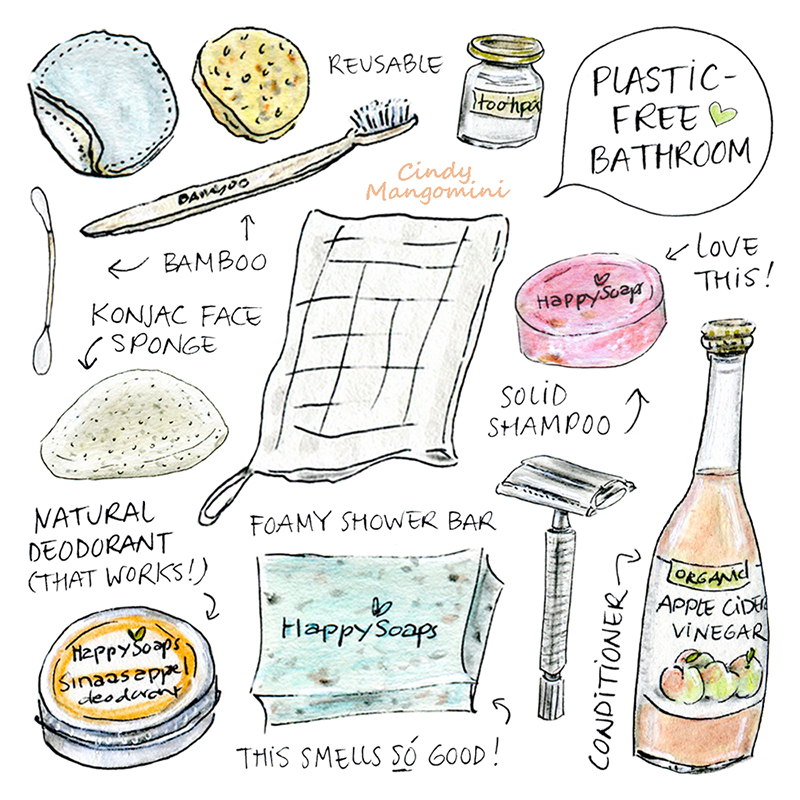 REUSABLE
PLASTIC-
FREE
BATHROOM
BAMBOO
Cindy
Mangomini
BAMBOO
LOVE
THIS!
KONJAC FACE
SPONGE
HappySoaps
SOLID
SHAMPOO
NATURAL
DEODORANT
(THAT WORKS!)
FOAMY SHOWER BAR
HappySoaps
Sinaasappel
deodorant
HappySoaps
CONDITIONER
APPLE CIDER
VINEGAR
THIS SMELLS SÓ GOOD!